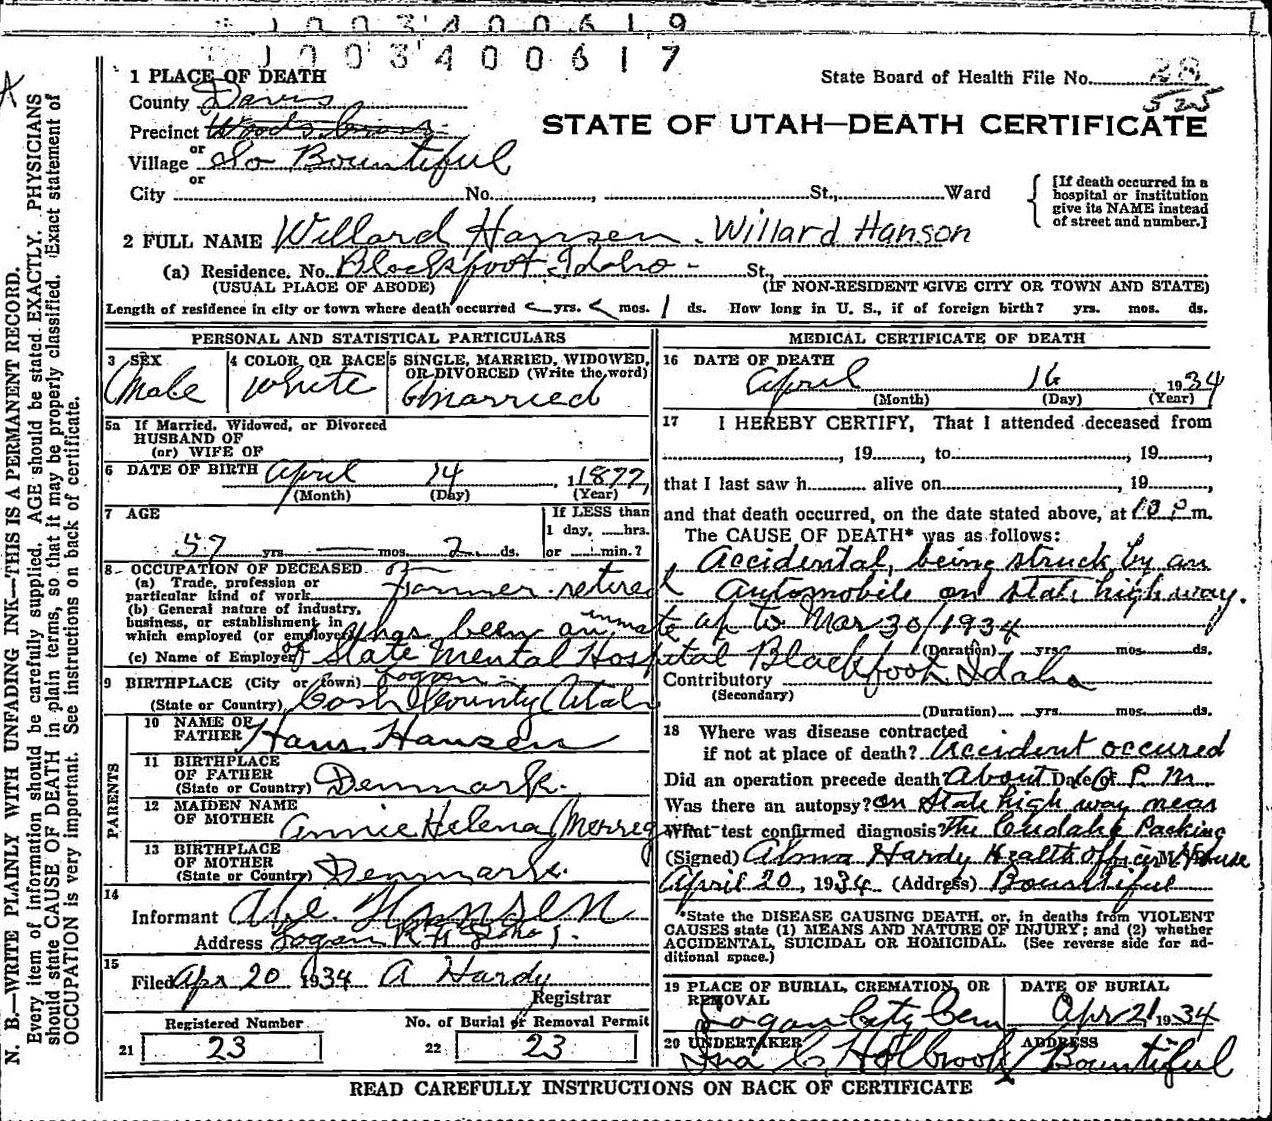 1003400619
1003400617
1 PLACE OF DEATH
State Board of Health File No. 28
525
County Davis
STATE OF UTAH—DEATH CERTIFICATE
Precinct Woods Cross
or
Village So Bountiful
or
City No. , St., Ward
[If death occurred in a hospital or institution give its NAME instead of street and number.]
2 FULL NAME Willard Hansen. Willard Hanson
(a) Residence. No. Blackfoot Idaho - St.,
(USUAL PLACE OF ABODE) (IF NON-RESIDENT GIVE CITY OR TOWN AND STATE)
Length of residence in city or town where death occurred yrs. mos. 1 ds. How long in U. S., if of foreign birth? yrs. mos. ds.
PERSONAL AND STATISTICAL PARTICULARS
3 SEX
Male
4 COLOR OR RACE
White
5 SINGLE, MARRIED, WIDOWED, OR DIVORCED (Write the word)
Married
5a If Married, Widowed, or Divorced
HUSBAND OF
(or) WIFE OF
6 DATE OF BIRTH April 14, 1877,
(Month) (Day) (Year)
7 AGE
57 yrs — mos. 2 ds.
If LESS than
1 day, hrs.
or min.?
8 OCCUPATION OF DECEASED
(a) Trade, profession or
particular kind of work Farmer retired
(b) General nature of industry,
business, or establishment in
which employed (or employer) has been an inmate up to Mar 30/1934
(c) Name of Employer of State Mental Hospital Blackfoot Idaho
9 BIRTHPLACE (City or town) Logan
(State or Country) Cash County Utah
PARENTS
10 NAME OF
FATHER Hans Hansen
11 BIRTHPLACE
OF FATHER
(State or Country) Denmark.
12 MAIDEN NAME
OF MOTHER Annie Helena
13 BIRTHPLACE
OF MOTHER
(State or Country) Denmark.
14
Informant Abe. Hansen
Address Logan
15
Filed Apr 20 1934 A Hardy
Registrar
Registered Number No. of Burial or Removal Permit
21 23 22 23
MEDICAL CERTIFICATE OF DEATH
16 DATE OF DEATH
April 16 1934
(Month) (Day) (Year)
17 I HEREBY CERTIFY, That I attended deceased from
, 19 , to , 19 ,
that I last saw h alive on , 19 ,
and that death occurred, on the date stated above, at 10 P m.
The CAUSE OF DEATH* was as follows:
Accidental, being struck by an
Automobile on state highway.
(Duration) yrs. mos. ds.
Contributory
(Secondary)
(Duration) yrs. mos. ds.
18 Where was disease contracted
if not at place of death? Accident occured
Did an operation precede death About Date of 10 P. M
Was there an autopsy? on State high way near
What test confirmed diagnosis The Cudahy Packing
(Signed) Alma Hardy Health officer M. D. House
April 20, 1934 (Address) Bountiful
*State the DISEASE CAUSING DEATH, or, in deaths from VIOLENT
CAUSES state (1) MEANS AND NATURE OF INJURY; and (2) whether
ACCIDENTAL, SUICIDAL OR HOMICIDAL. (See reverse side for ad-
ditional space.)
19 PLACE OF BURIAL, CREMATION, OR
REMOVAL
Logan City Cem
DATE OF BURIAL
Apr 21 1934
20 UNDERTAKER
Ina C Holbrook
ADDRESS
Bountiful
READ CAREFULLY INSTRUCTIONS ON BACK OF CERTIFICATE
N. B.—WRITE PLAINLY WITH UNFADING INK—THIS IS A PERMANENT RECORD.
Every item of information should be carefully supplied. AGE should be stated EXACTLY. PHYSICIANS
should state CAUSE OF DEATH in plain terms, so that it may be properly classified. Exact statement of
OCCUPATION is very important. See instructions on back of certificate.